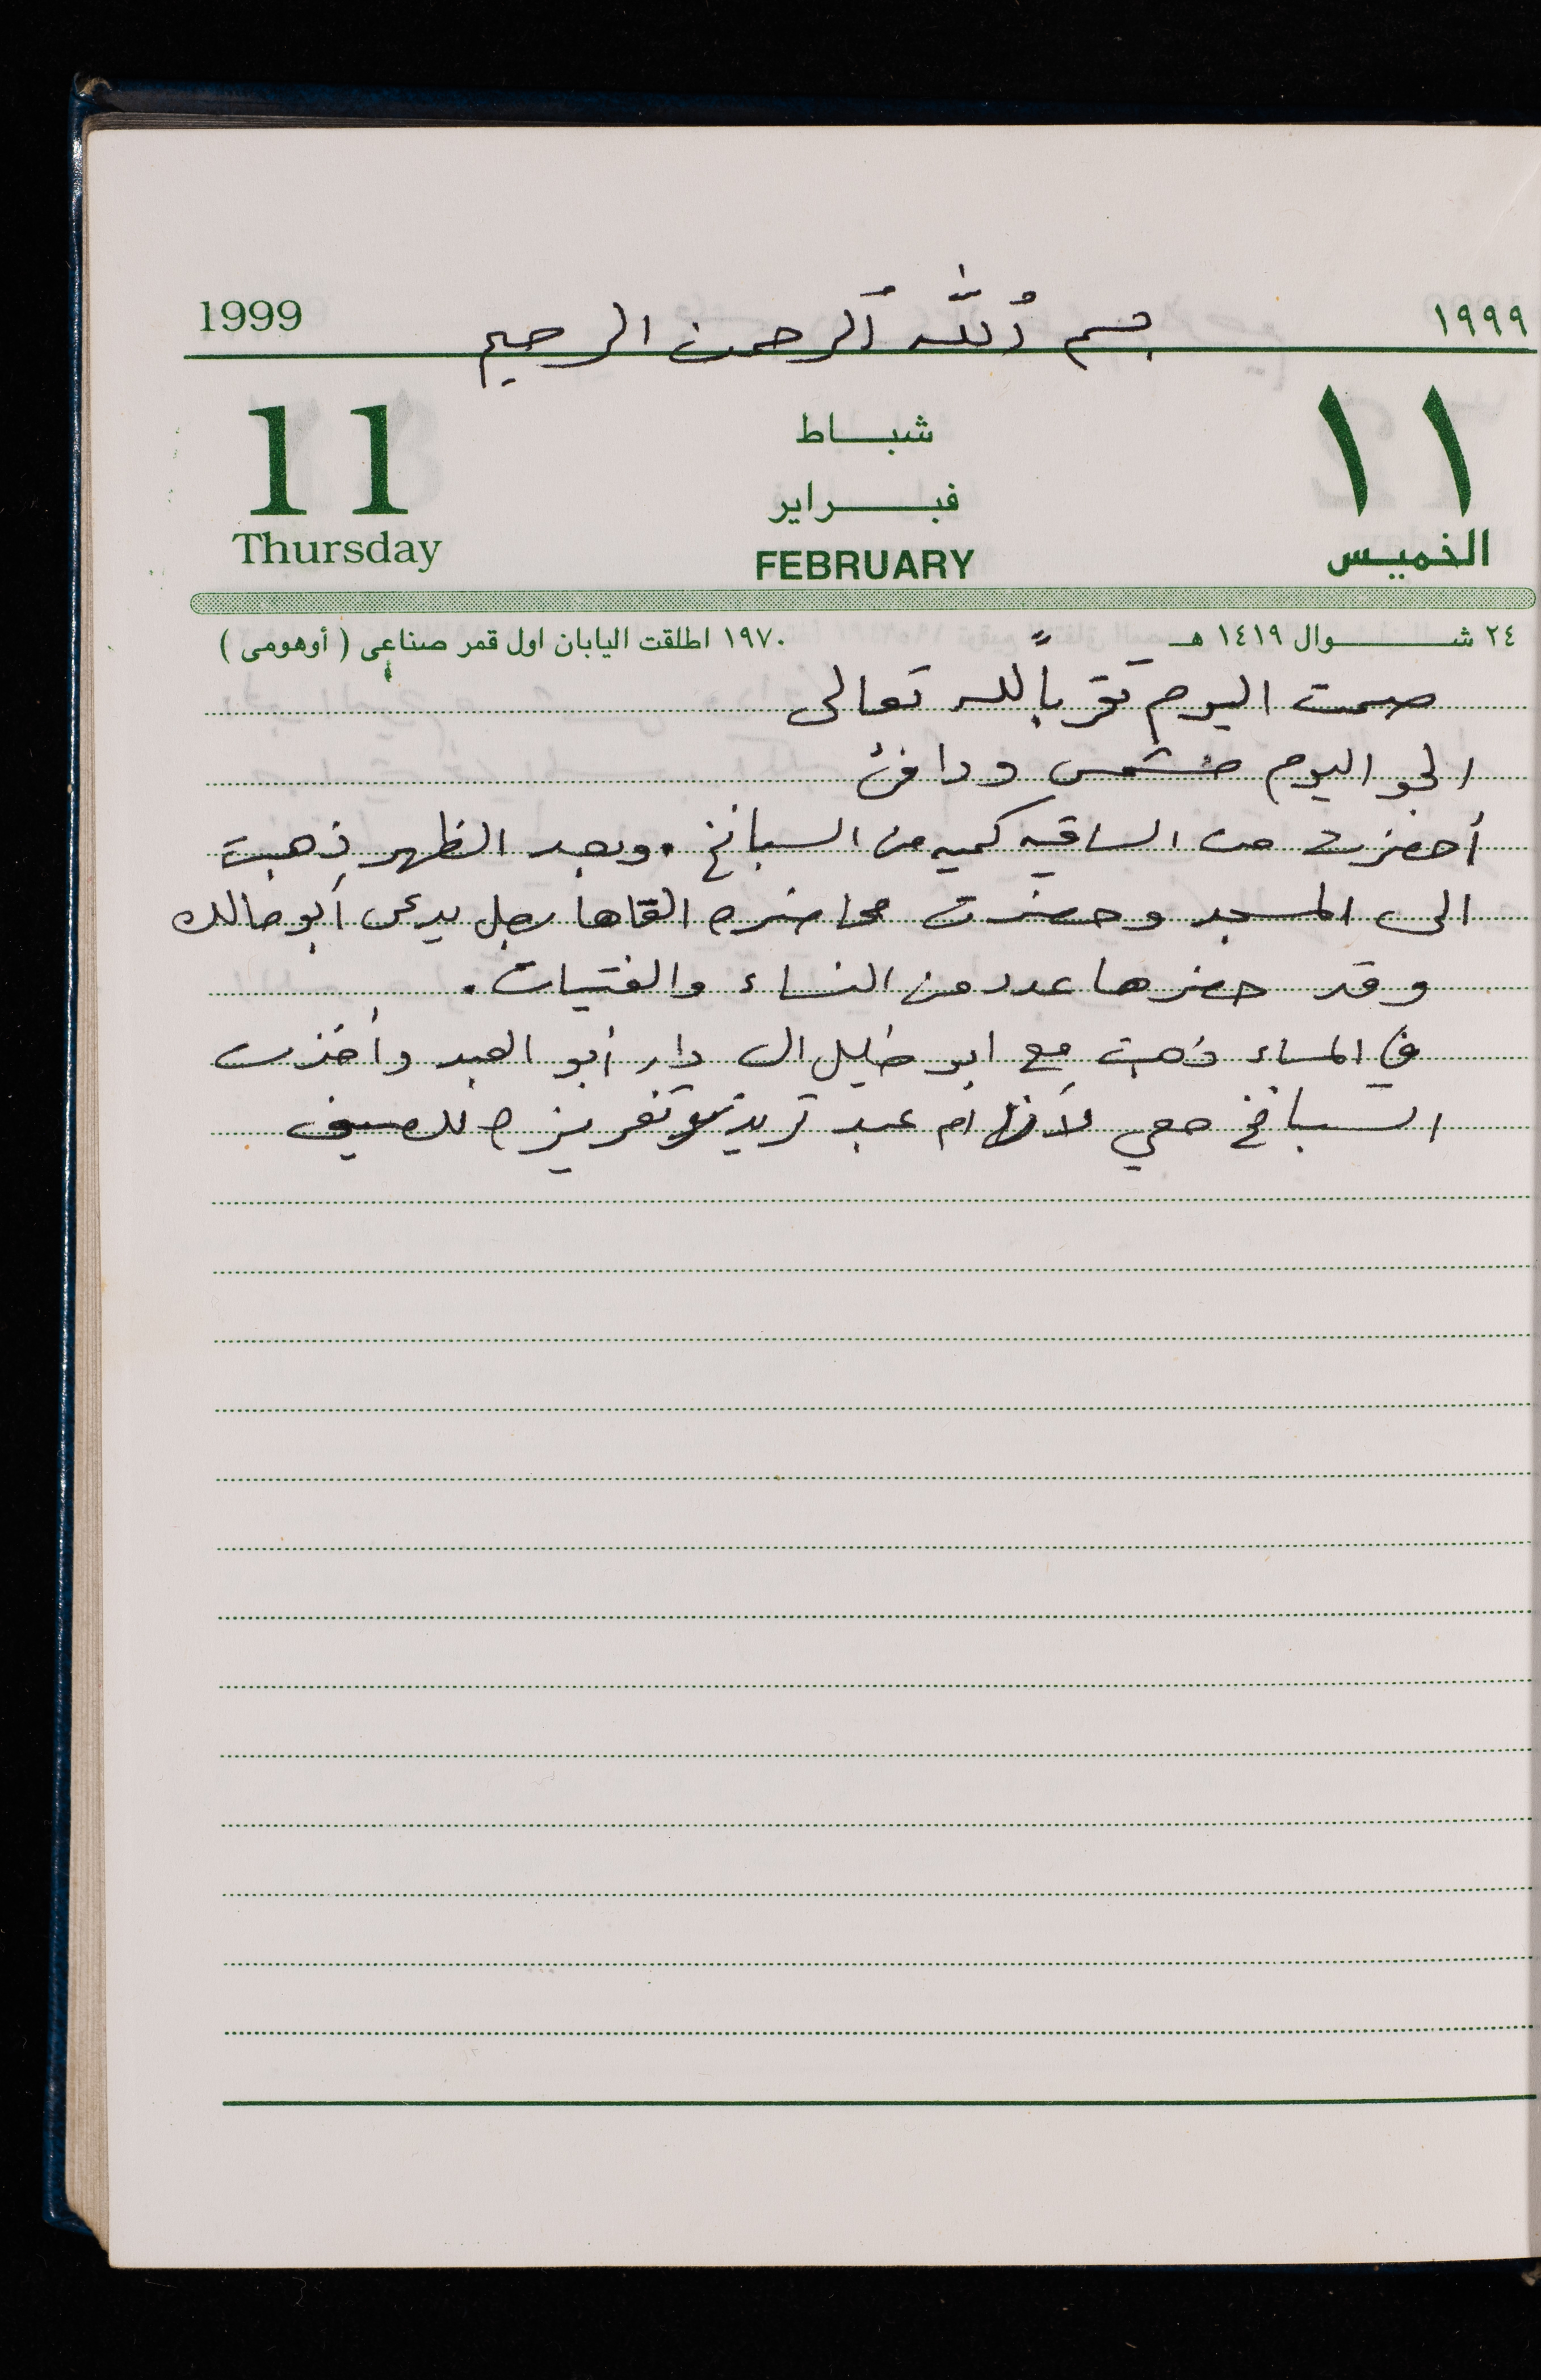 1999 بسم الله الرحمن الرحيم ١٩٩٩
11 شباط ١١
فبراير
Thursday FEBRUARY الخميس
٢٤ شوال ١٤١٩ هـ ١٩٧٠ اطلقت اليابان اول قمر صناعي ( أوهومى )
صمت اليوم تقرباً لله تعالى
الجو اليوم مشمس ودافئ
أحضرت من الساقيه كميه من السبانخ . وبعد الظهر ذهبت
الى المسجد وحضرت محاضره القاها رجل يدعى أبو مالك
وقد حضرها عدد من النساء والفتيات .
في المساء ذهبت مع ابو خليل الى دار أبو العبد وأخذت
السبانخ معي لأن ام عبد تريد تفريزه للصيف